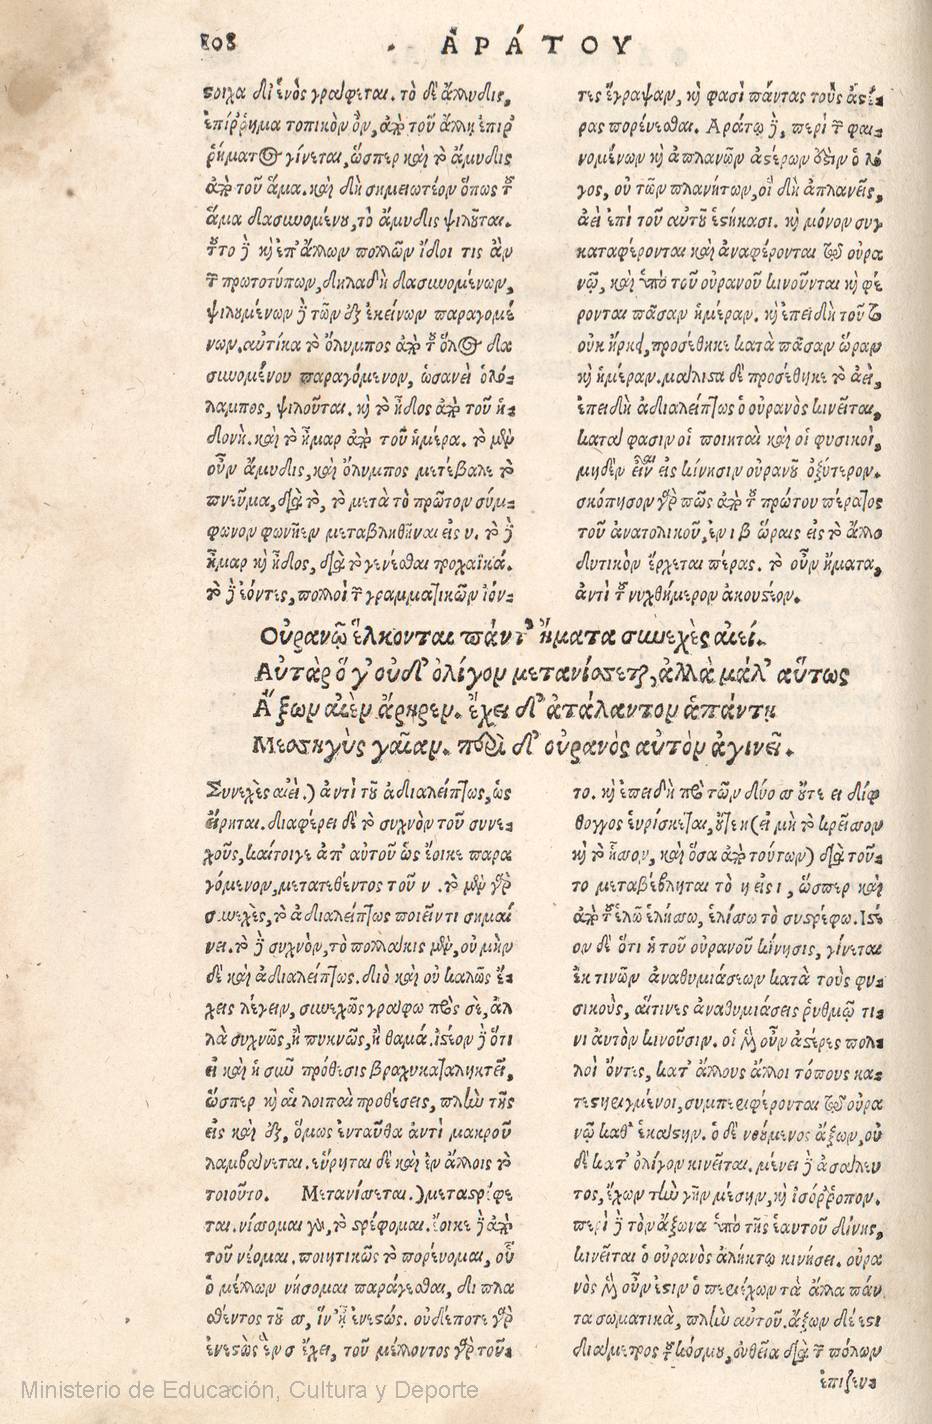 ἈΡΆΤΟΥ
ϛοιχα δι' ἑνὸς γράφεται. τὸ δὲ ἄλλυδις,
ἐπίῤῥημα τοπικὸν ὂν, ἀπὸ τοῦ ἄλλη ἐπιῤ
ῥήματος γίνεται, ὥσπερ καὶ τὸ ἄμυδις
ἀπὸ τοῦ ἅμα. καὶ δὴ σημειωτέον ὅπως τοῦ
ἅμα δασυνομένου, τὸ ἄμυδις ψιλοῦται.
τοῦτο δὲ καὶ ἐπ' ἄλλων πολλῶν ἴδοι τις ἂν
τῶν πρωτοτύπων, δηλαδὴ δασυνομένων,
ψιλουμένων δὲ τῶν ἐξ ἐκείνων παραγομέ
νων. αὐτίκα τὸ ὄλυμπος ἀπὸ τοῦ ὅλος δα
συνομένου παραγόμενον, ὡσανεὶ ὁλό-
λαμπος, ψιλοῦται. καὶ τὸ ἦδος ἀπὸ τοῦ ἡ-
δονή. καὶ τὸ ἦμαρ ἀπὸ τοῦ ἡμέρα. τὸ μὲν
οὖν ἄμυδις, καὶ ὄλυμπος μετέβαλε τὸ
πνεῦμα, διὰ τὸ, τὸ μετὰ τὸ πρῶτον σύμ-
φωνον φωνῆεν μεταβληθῆναι εἰς υ. τὸ δὲ
ἦμαρ καὶ ἦδος, διὰ τὸ γενέσθαι τροχαϊκά.
τὸ δὲ ἰόντες, πολλοὶ τῶν γραμματικῶν ἰόν-
τες ἔγραψαν, καὶ φασὶ πάντας τοὺς ἀστέ-
ρας πορεύεσθαι. Ἀράτῳ δὲ, περὶ τῶν φαι-
νομένων καὶ ἀπλανῶν ἀστέρων ἐστὶν ὁ λό
γος, οὐ τῶν πλανήτων, οἳ δὴ ἀπλανεῖς,
ἀεὶ ἐπὶ τοῦ αὐτοῦ ἑστήκασι. καὶ μόνον συγ
καταφέρονται καὶ ἀναφέρονται τῷ οὐρα
νῷ, καὶ ὑπὸ τοῦ οὐρανοῦ κινοῦνται καὶ φέ
ρονται πᾶσαν ἡμέραν. καὶ ἐπειδὴ τοῦτο
οὐκ ἤρκει, προσέθηκε κατὰ πᾶσαν ὥραν
καὶ ἡμέραν. μάλιστα δὲ προσέθηκε τὸ ἀεὶ,
ἐπειδὴ ἀδιαλείπτως ὁ οὐρανὸς κινεῖται,
κατά φασιν οἱ ποιηταὶ καὶ οἱ φυσικοὶ,
μηδὲν εἶναι εἰς κίνησιν οὐρανοῦ ὀξύτερον.
σκόπησον γὰρ πῶς ἀπὸ τοῦ πρώτου πέρατος
τοῦ ἀνατολικοῦ, ἐν ιβ ὥραις εἰς τὸ ἄλλο
δυτικὸν ἔρχεται πέρας. τὸ οὖν ἤματα,
ἀντὶ τοῦ νυχθήμερον ἀκουστέον.
Οὐρανῷ ἕλκονται πάντ' ἤματα συνεχὲς αἰεί.
Αὐτὰρ ὅ γ' οὐδ' ὀλίγον μετανίσσεται, ἀλλὰ μάλ' αὕτως
Ἄξων αἰὲν ἄρηρεν. ἔχει δ' ἀτάλαντον ἁπάντη
Μεσσηγὺς γαῖαν. περὶ δ' οὐρανὸς αὐτὸν ἀγινεῖ.
Συνεχὲς αἰεί.) ἀντὶ τοῦ ἀδιαλείπτως, ὡς
εἴρηται. διαφέρει δὲ τὸ συχνὸν τοῦ συνε-
χοῦς, καίτοιγε ἀπ' αὐτοῦ ὡς ἔοικε παρα
γόμενον, μετατεθέντος τοῦ ν. τὸ μὲν γὰρ
συνεχὲς, τὸ ἀδιαλείπτως ποιεῖν τι σημαί
νει. τὸ δὲ συχνὸν, τὸ πολλάκις μὲν, οὐ μὴν
δὲ καὶ ἀδιαλείπτως. διὸ καὶ οὐ καλῶς ἔ-
χεις λέγειν, συνεχῶς γράφω πρὸς σὲ, ἀλ
λὰ συχνῶς, ἢ πυκνῶς, ἢ θαμά. ἰστέον δὲ ὅτι
εἰ καὶ ἡ σὺν πρόθεσις βραχυκαταληκτεῖ,
ὥσπερ καὶ αἱ λοιπαὶ προθέσεις, πλὴν τῆς
εἰς καὶ ἐξ, ὅμως ἐνταῦθα ἀντὶ μακροῦ
λαμβάνεται. εὕρηται δὲ καὶ ἐν ἄλλοις τὸ
τοιοῦτο. Μετανίσσεται.) μεταστρέφε
ται. νίσσομαι γὰρ, τὸ στρέφομαι. ἔοικε δὲ ἀπὸ
τοῦ νέομαι. ποιητικῶς τὸ πορεύομαι, οὗ
ὁ μέλλων νήσομαι παράγεσθαι, διπλα
σθέντος τοῦ σ, ἵν' ᾖ ἐνεστώς. οὐδέποτε γὰρ
ἐνεστὼς ἓν σ ἔχει, τοῦ μέλλοντος γὰρ τοῦ-
το. καὶ ἐπειδὴ πρὸ τῶν δύο σσ οὔτε ει δίφ
θογγος εὑρίσκεται, οὔτε η (εἰ μὴ τὸ κρεῖσσον
καὶ τὸ ἧσσον, καὶ ὅσα ἀπὸ τούτων) διὰ τοῦ-
το μεταβέβληται τὸ η εἰς ι, ὥσπερ καὶ
ἀπὸ τοῦ ἑλῶ ἑλήσσω, ἑλίσσω τὸ συστρέφω. Ἰστέ
ον δὲ ὅτι ἡ τοῦ οὐρανοῦ κίνησις, γίνεται
ἐκ τινῶν ἀναθυμιάσεων κατὰ τοὺς φυ-
σικοὺς, αἵτινες ἀναθυμιάσεις ῥυθμῷ τι-
νι αὐτὸν κινοῦσιν. οἱ μὲν οὖν ἀστέρες πολ-
λοὶ ὄντες, κατ' ἄλλους ἄλλοι τόπους κα-
τεστηριγμένοι, συμπεριφέρονται τῷ οὐρα
νῷ καθ' ἑκάστην. ὁ δὲ νοούμενος ἄξων, οὐ
δὲ κατ' ὀλίγον κινεῖται. μένει δὲ ἀσάλευ
τος, ἔχων τὴν γῆν μέσην, καὶ ἰσόῤῥοπον.
περὶ δὲ τὸν ἄξονα ὑπὸ τῆς ἑαυτοῦ δίνης,
κινεῖται ὁ οὐρανὸς ἀλήκτῳ κινήσει. οὐρα
νὸς μὲν οὖν ἐστιν ὁ περιέχων τὰ ἄλλα πάν
τα σωματικὰ, πλὴν αὐτοῦ. ἄξων δέ ἐστι
διάμετρος τοῦ κόσμου, εὐθεῖα διὰ τῶν πόλων
ἐπιζευ-
Ministerio de Educación, Cultura y Deporte